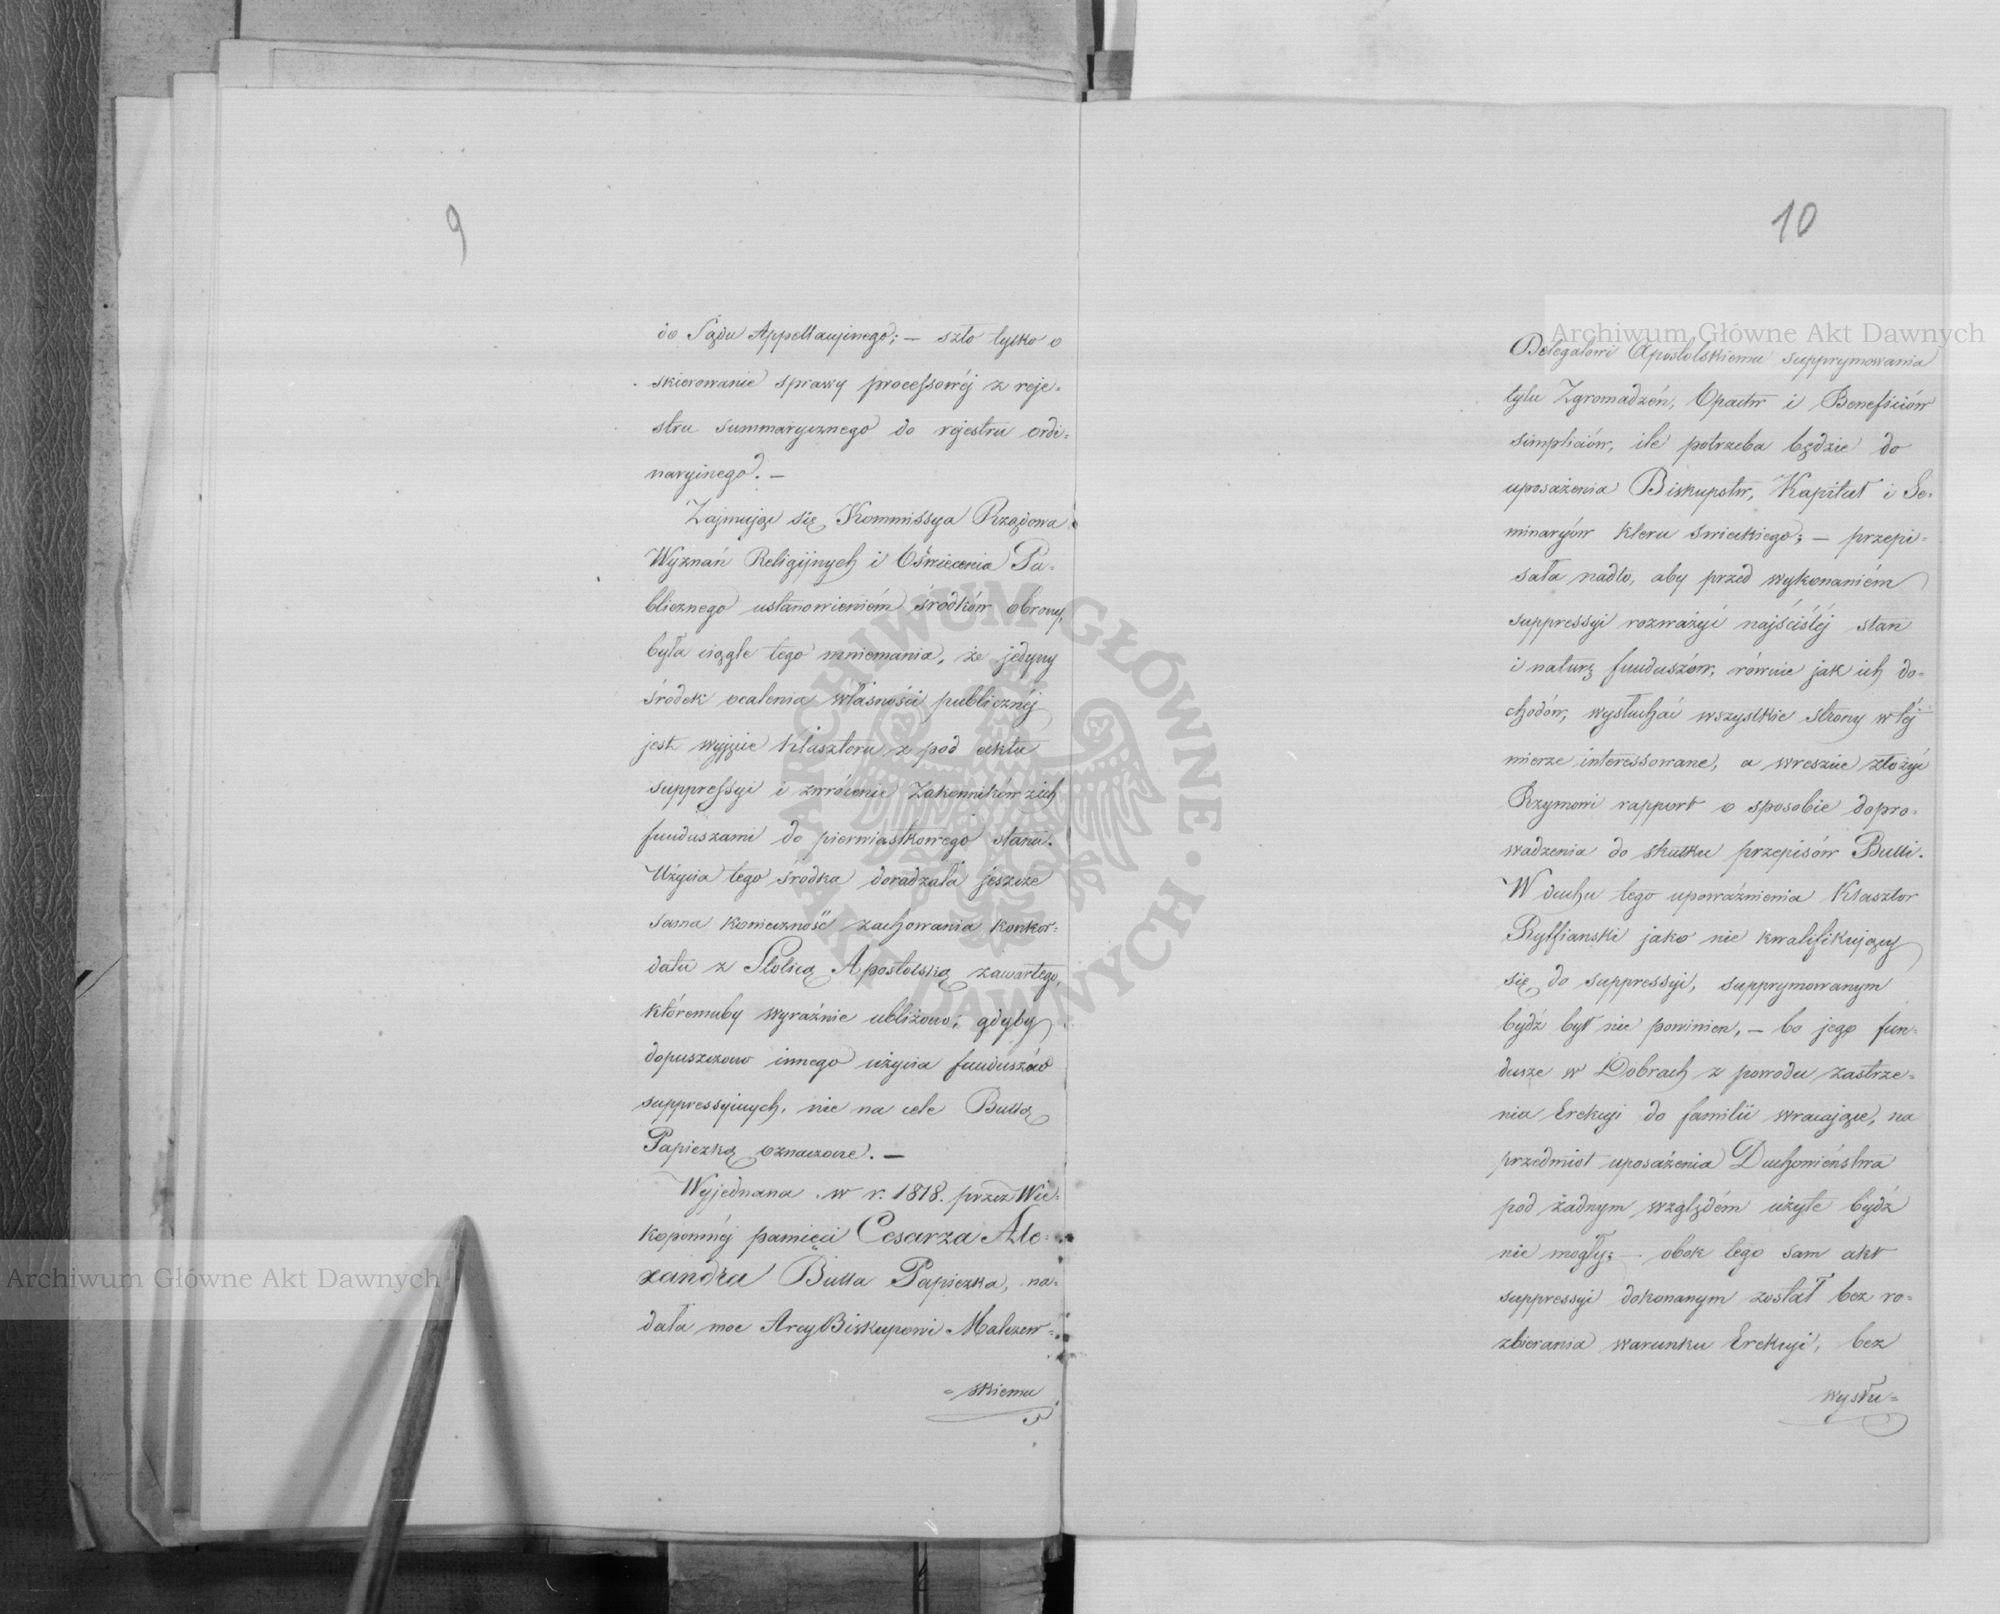 9
do Sądu Appellacyinego; — szło tylko o
skierowanie sprawy processowéj z reje=
stru summarycznego do rejestru ordi=
naryinego. —
Zajmując się Kommissya Rządowa
Wyznań Religijnych i Oświecenia Pu=
blicznego ustanowieniém środków obrony,
była ciągle tego mniemania, że jedyny
środek ocalenia własności publicznéj
jest wyjęcie Klasztoru z pod aktu
suppressyi i zwrócenie Zakonników z ich
funduszami do pierwiastkowego stanu.
Użycia tego środka doradzała jeszcze
sama konieczność zachowania konkor=
datu z Stolicą Apostolską zawartego,
któremuby wyraźnie ubliżono, gdyby
dopuszczono innego użycia funduszów
suppressyinych, nie na cele Bullą
Papiezką oznaczone. —
Wyjednana w r. 1818. przez Wie=
kopomnéj pamięci Cesarza Ale=
xandra Bulla Papiezka, na=
dała moc ArcyBiskupowi Malczew=
=skiemu
10
Delegatowi Apostolskiemu supprymowania
tylu Zgromadzeń, Opactw i Beneficiów
simpliciów, ile potrzeba będzie do
uposażenia Biskupstw, Kapituł i Se=
minaryów kleru swieckiego; — przepi=
sała nadto, aby przed wykonaniém
suppressyi rozważyć najściśléj stan
i naturę funduszów, równie jak ich do=
chodów, wysłuchać wszystkie strony w téj
mierze interessowane, a wreszcie złożyć
Rzymowi rapport o sposobie dopro=
wadzenia do skutku przepisów Bulli.
W duchu tego upoważnienia Klasztor
Rytfianski jako nie kwalifikujący
się do suppressyi, supprymowanym
bydź był nie powinien, — bo jego fun=
dusze w Dobrach z powodu zastrze=
nia Erekcyi do familii wracające, na
przedmiot uposażenia Duchowieństwa
pod żadnym względém użyte bydź
nie mogły; — obok tego sam akt
suppressyi dokonanym został bez ro=
zbierania warunku Erekcyi, bez
wysłu=
Archiwum Główne Akt Dawnych
Archiwum Główne Akt Dawnych
ARCHIWUM GŁÓWNE AKT DAWNYCH